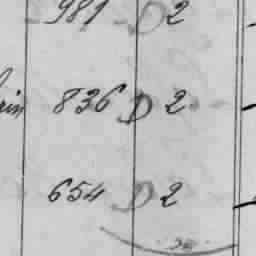 981 D 2
836 D 2
654 D 2